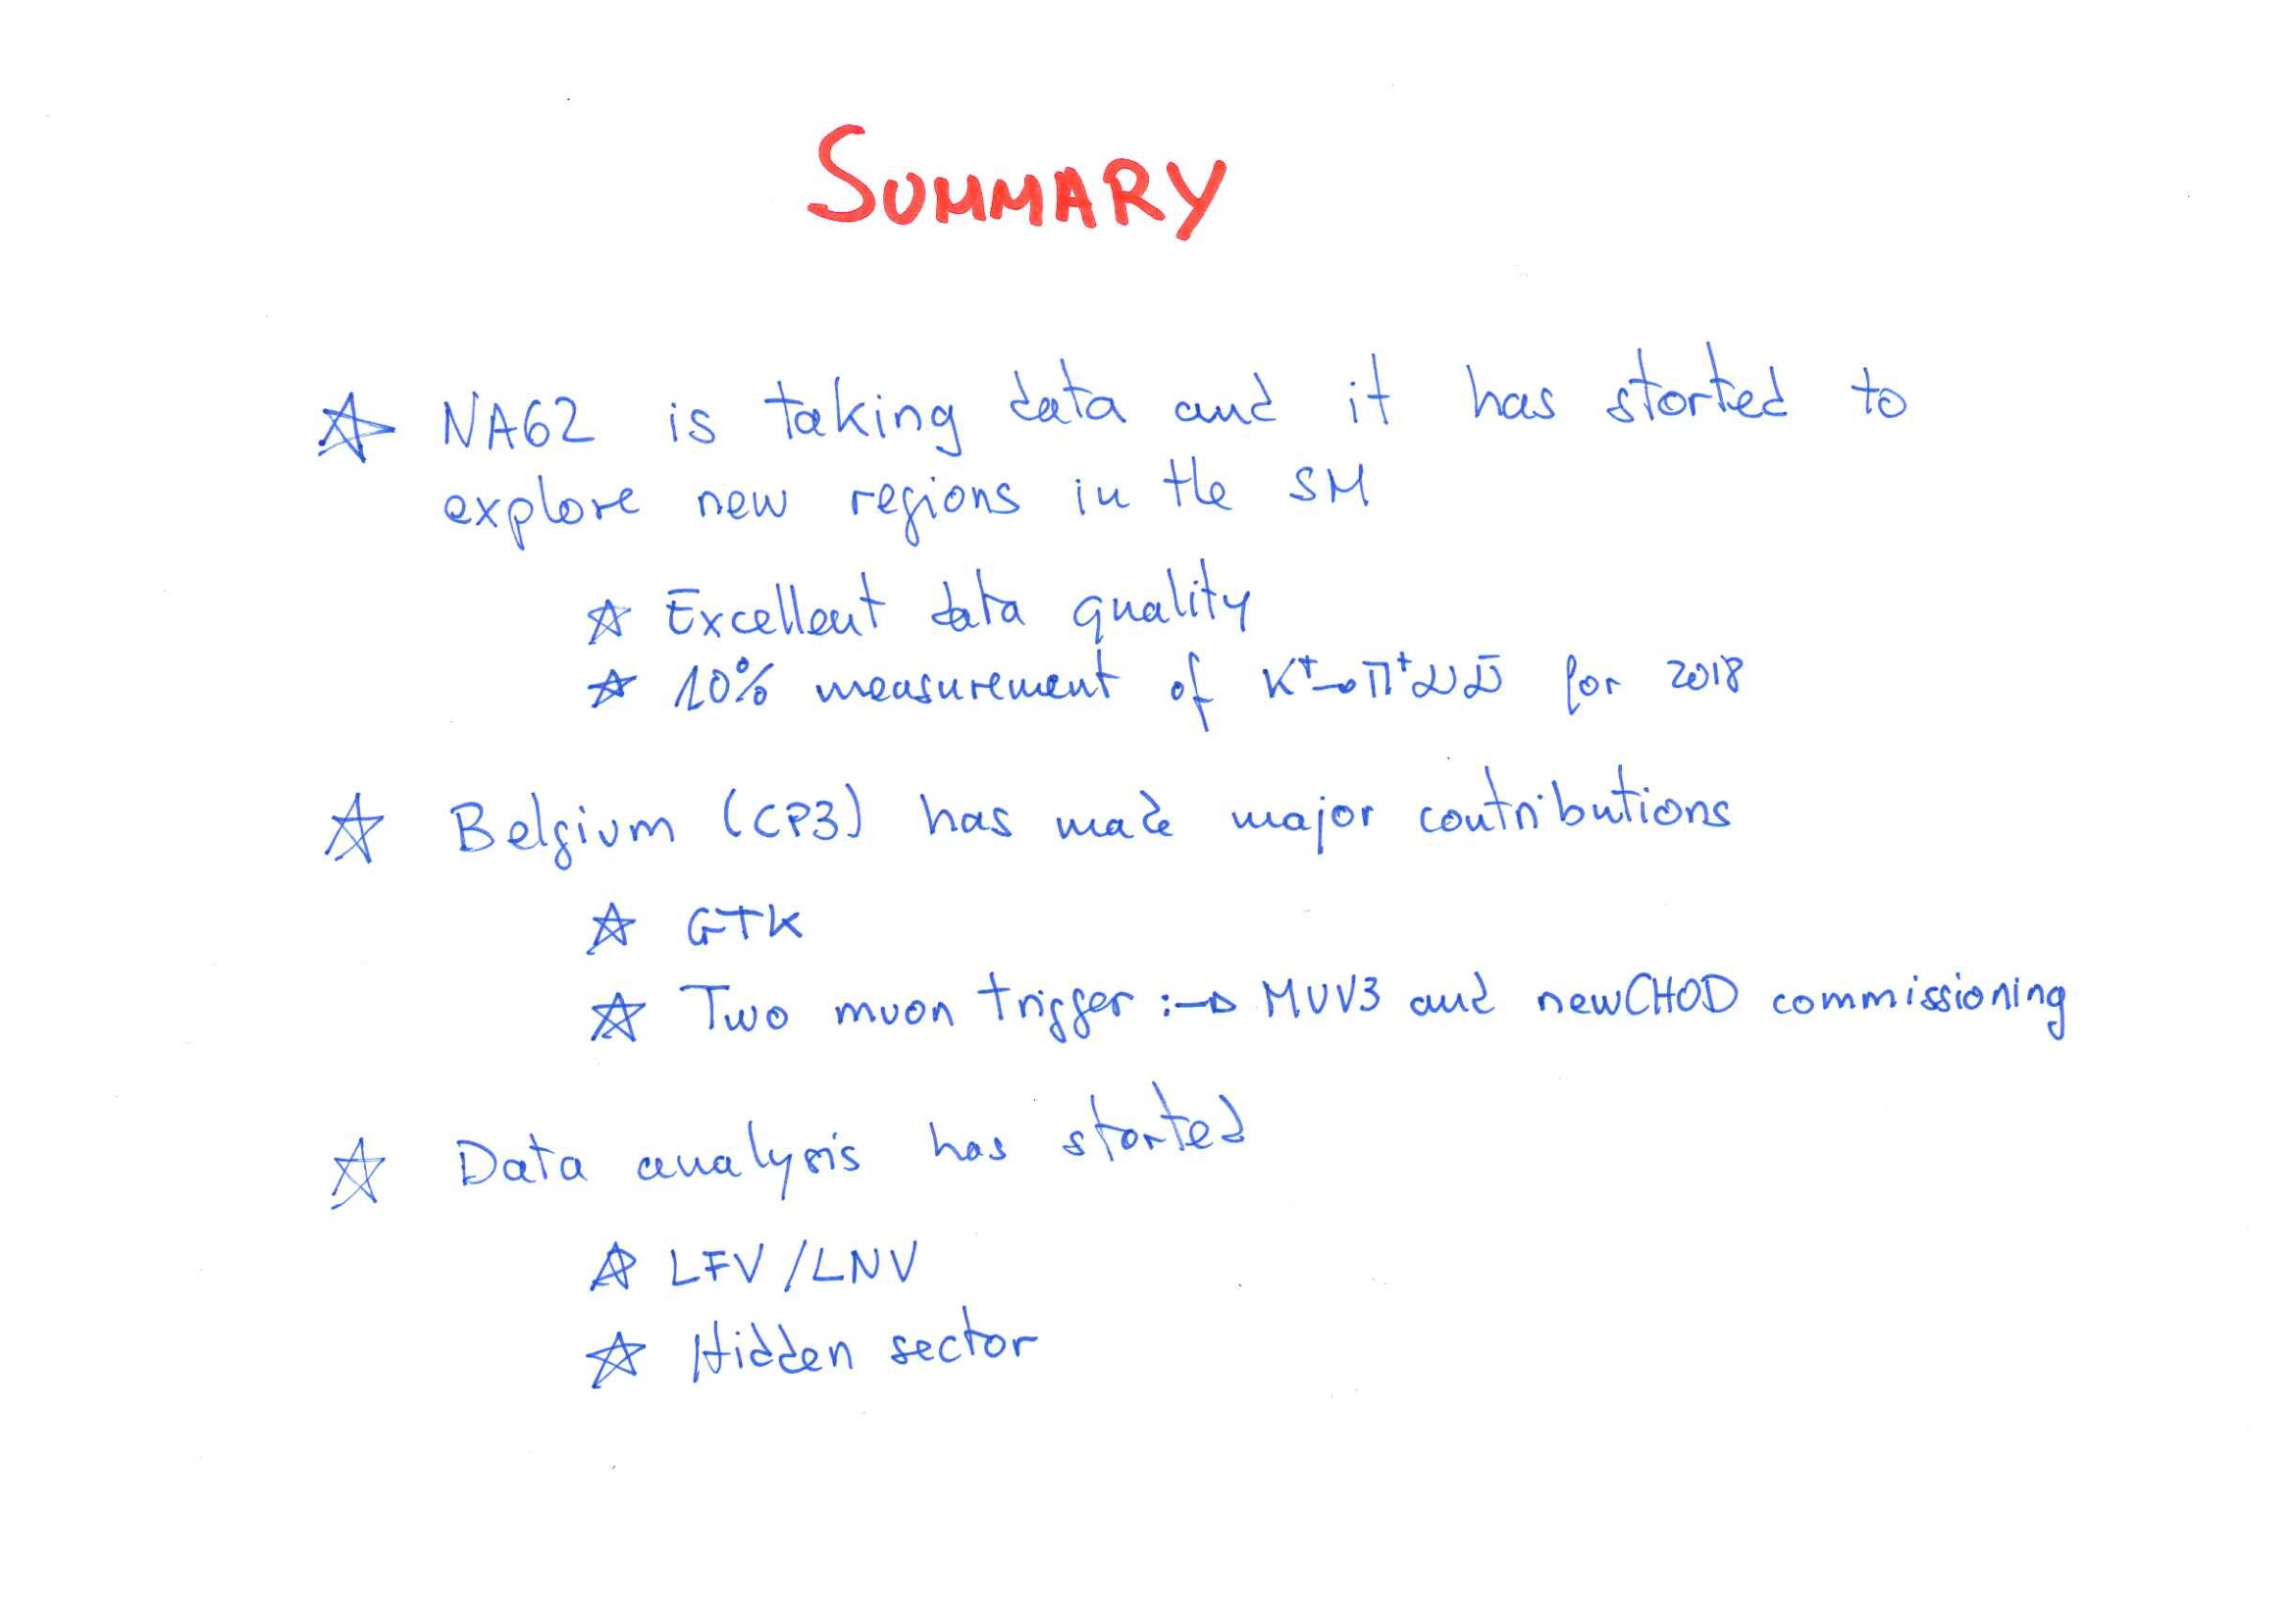 SUMMARY
☆ NA62 is taking data and it has started to
explore new regions in the SM
☆ Excellent data quality
☆ 10% measurement of K⁺→π⁺νν̄ for 2018
☆ Belgium (CP3) has made major contributions
☆ GTK
☆ Two muon trigger :→ MUV3 and newCHOD commissioning
☆ Data analysis has started
☆ LFV/LNV
☆ Hidden sector